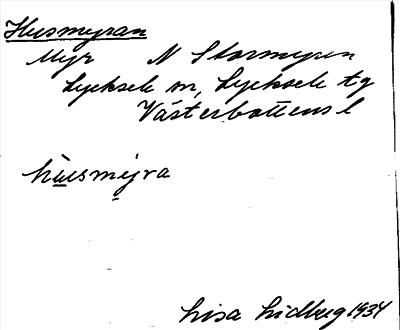 Husmyran
Myr N Stormyran
Lycksele sn, Lycksele tg
Västerbottens l
hùsmỳra
Lisa Lidberg 1934